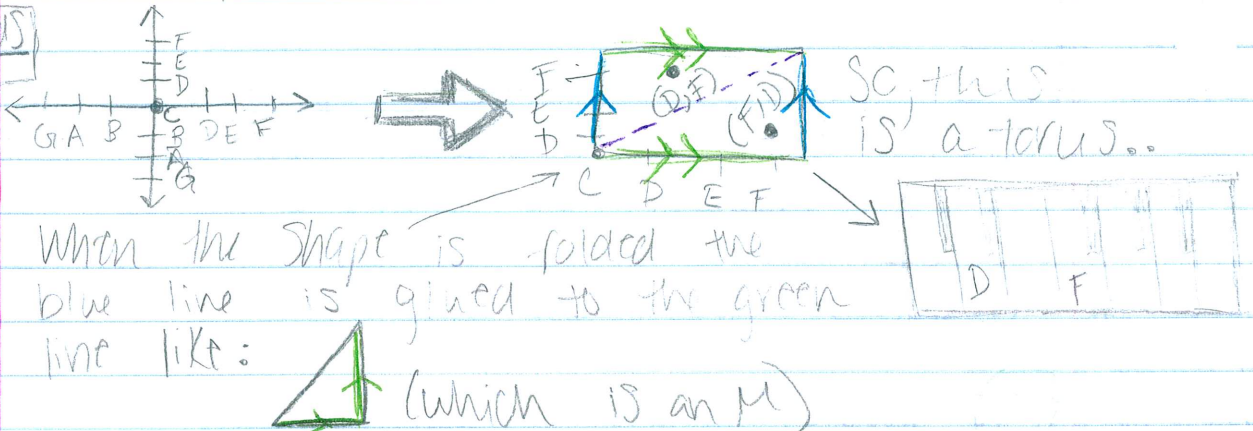 F
E
D
C
G A B D E F
B
A
G
F
E
D
C D E F
(D,F)
(F,D)
So, this
is a torus..
When the shape is folded the
blue line is glued to the green
line like:
(which is an M)
D F